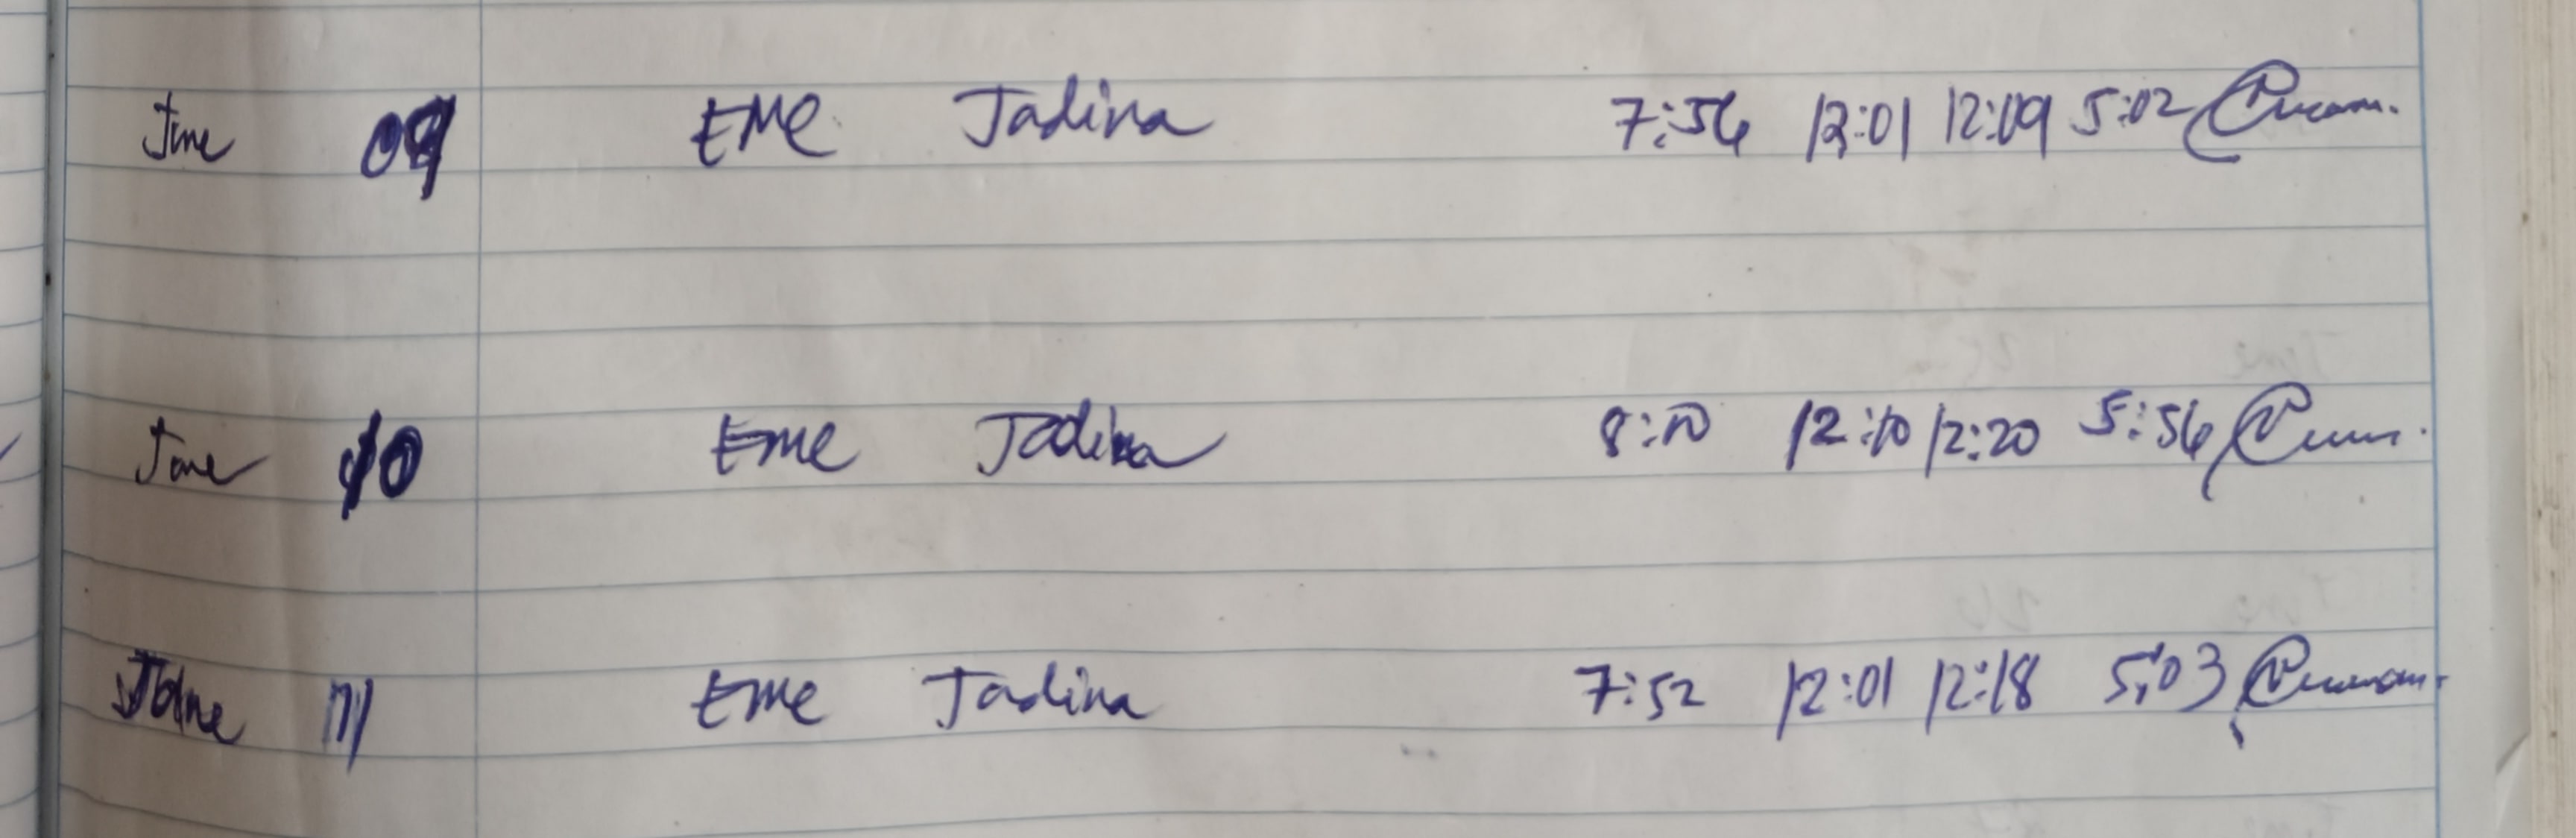 June 09 EME Jadina 7:56 12:01 12:09 5:02
June 10 Eme Jadina 8:10 12:10 12:20 5:56
June 11 Eme Jadina 7:52 12:01 12:18 5:03